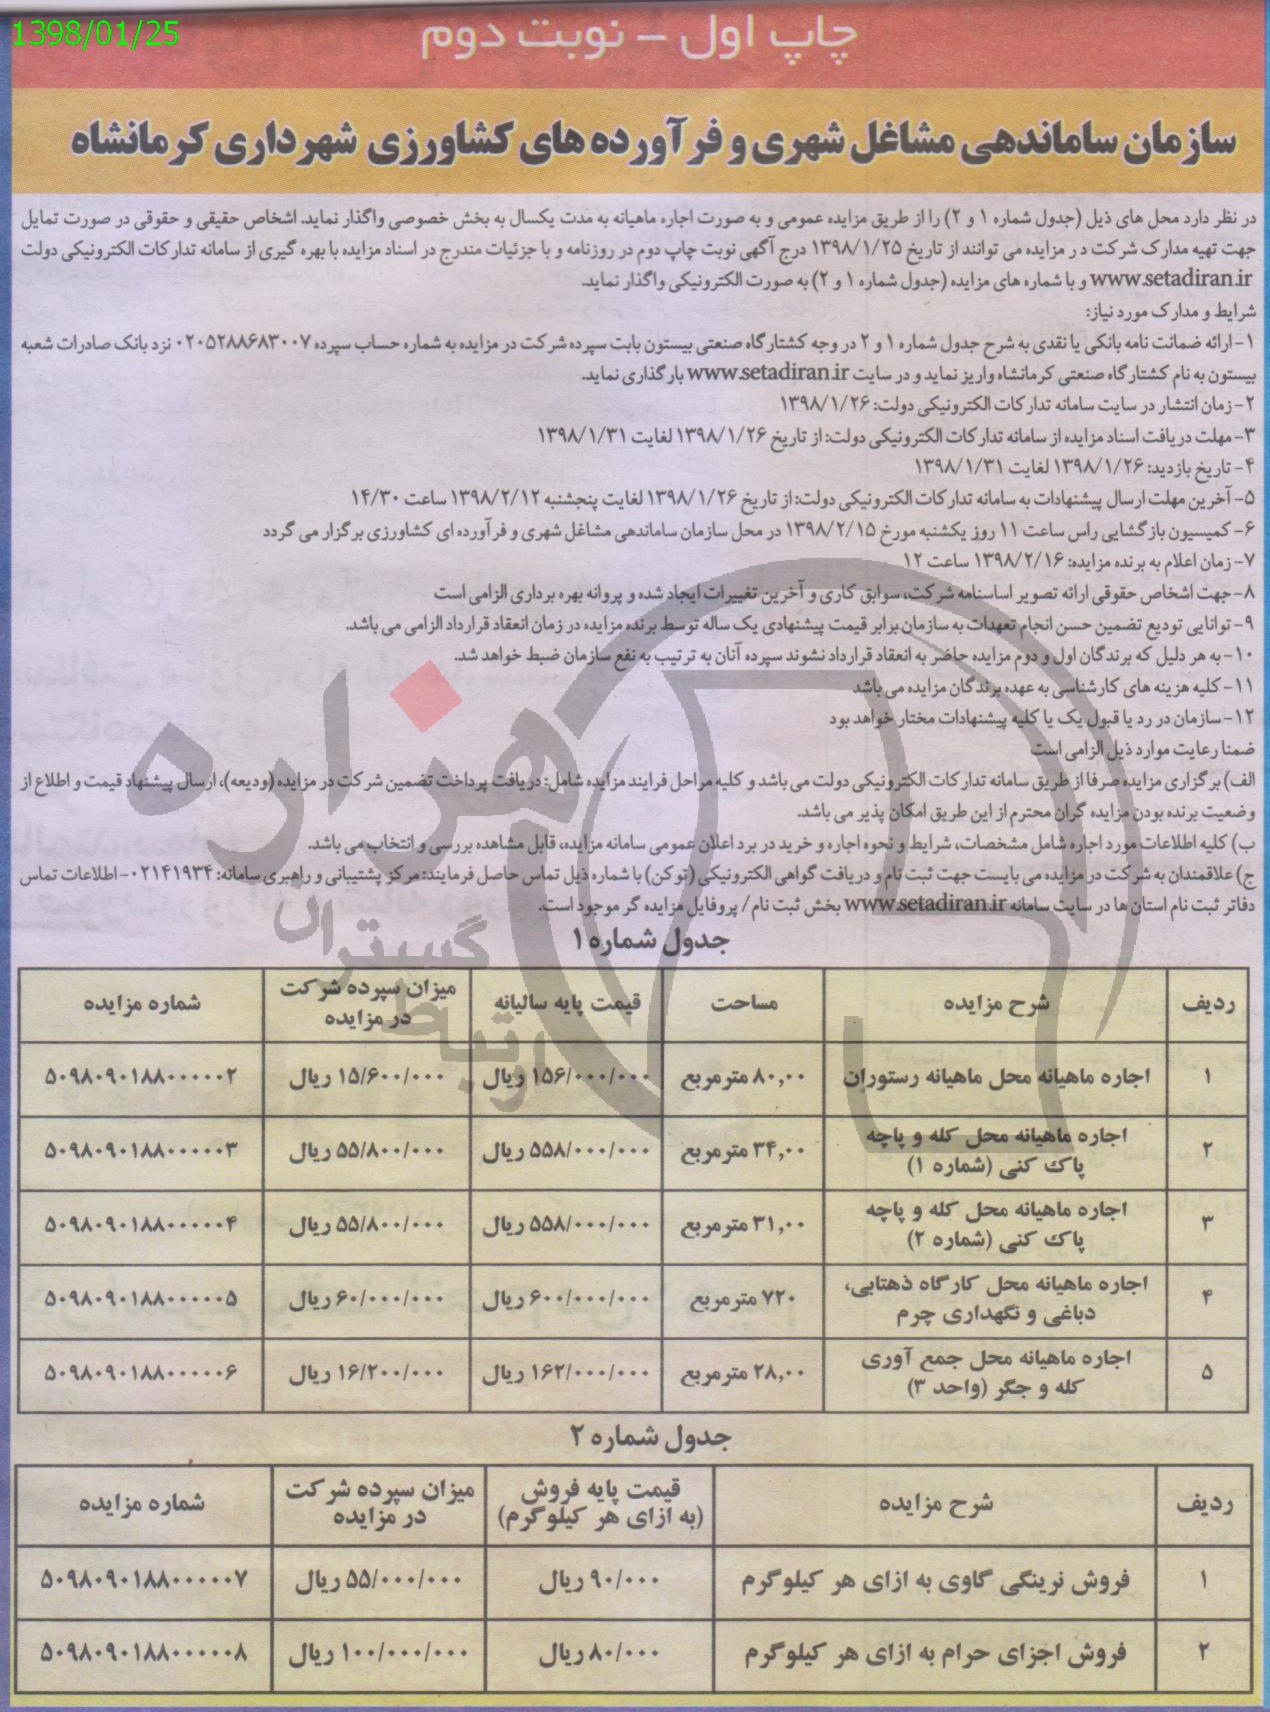 1398/01/25
چاپ اول - نوبت دوم
سازمان ساماندهی مشاغل شهری و فرآورده های کشاورزی شهرداری کرمانشاه
در نظر دارد محل های ذیل (جدول شماره ۱ و ۲) را از طریق مزایده عمومی و به صورت اجاره ماهیانه به مدت یکسال به بخش خصوصی واگذار نماید. اشخاص حقیقی و حقوقی در صورت تمایل
جهت تهیه مدارک شرکت در مزایده می توانند از تاریخ ۱۳۹۸/۱/۲۵ درج آگهی نوبت چاپ دوم در روزنامه و با جزئیات مندرج در اسناد مزایده با بهره گیری از سامانه تدارکات الکترونیکی دولت
www.setadiran.ir و با شماره های مزایده (جدول شماره ۱ و ۲) به صورت الکترونیکی واگذار نماید.
شرایط و مدارک مورد نیاز:
۱- ارائه ضمانت نامه بانکی یا نقدی به شرح جدول شماره ۱ و ۲ در وجه کشتارگاه صنعتی بیستون بابت سپرده شرکت در مزایده به شماره حساب سپرده ۰۲۰۵۲۸۸۶۸۳۰۰۷ نزد بانک صادرات شعبه
بیستون به نام کشتارگاه صنعتی کرمانشاه واریز نماید و در سایت www.setadiran.ir بارگذاری نماید.
۲- زمان انتشار در سایت سامانه تدارکات الکترونیکی دولت: ۱۳۹۸/۱/۲۶
۳- مهلت دریافت اسناد مزایده از سامانه تدارکات الکترونیکی دولت: از تاریخ ۱۳۹۸/۱/۲۶ لغایت ۱۳۹۸/۱/۳۱
۴- تاریخ بازدید: ۱۳۹۸/۱/۲۶ لغایت ۱۳۹۸/۱/۳۱
۵- آخرین مهلت ارسال پیشنهادات به سامانه تدارکات الکترونیکی دولت: از تاریخ ۱۳۹۸/۱/۲۶ لغایت پنجشنبه ۱۳۹۸/۲/۱۲ ساعت ۱۴/۳۰
۶- کمیسیون بازگشایی راس ساعت ۱۱ روز یکشنبه مورخ ۱۳۹۸/۲/۱۵ در محل سازمان ساماندهی مشاغل شهری و فرآورده ای کشاورزی برگزار می گردد
۷- زمان اعلام به برنده مزایده: ۱۳۹۸/۲/۱۶ ساعت ۱۲
۸- جهت اشخاص حقوقی ارائه تصویر اساسنامه شرکت، سوابق کاری و آخرین تغییرات ایجاد شده و پروانه بهره برداری الزامی است
۹- توانایی تودیع تضمین حسن انجام تعهدات به سازمان برابر قیمت پیشنهادی یک ساله توسط برنده مزایده در زمان انعقاد قرارداد الزامی می باشد.
۱۰- به هر دلیل که برندگان اول و دوم مزایده حاضر به انعقاد قرارداد نشوند سپرده آنان به ترتیب به نفع سازمان ضبط خواهد شد.
۱۱- کلیه هزینه های کارشناسی به عهده برندگان مزایده می باشد
۱۲- سازمان در رد یا قبول یک یا کلیه پیشنهادات مختار خواهد بود
ضمنا رعایت موارد ذیل الزامی است
الف) برگزاری مزایده صرفا از طریق سامانه تدارکات الکترونیکی دولت می باشد و کلیه مراحل فرایند مزایده شامل: دریافت پرداخت تضمین شرکت در مزایده (ودیعه)، ارسال پیشنهاد قیمت و اطلاع از
وضعیت برنده بودن مزایده گران محترم از این طریق امکان پذیر می باشد.
ب) کلیه اطلاعات مورد اجاره شامل مشخصات، شرایط و نحوه اجاره و خرید در برد اعلان عمومی سامانه مزایده، قابل مشاهده بررسی و انتخاب می باشد.
ج) علاقمندان به شرکت در مزایده می بایست جهت ثبت نام و دریافت گواهی الکترونیکی (توکن) با شماره ذیل تماس حاصل فرمایند: مرکز پشتیبانی و راهبری سامانه: ۰۲۱۴۱۹۳۴- اطلاعات تماس
دفاتر ثبت نام استان ها در سایت سامانه www.setadiran.ir بخش ثبت نام/ پروفایل مزایده گر موجود است.
هزاره
ارتباط گستران
جدول شماره ۱
ردیف شرح مزایده مساحت قیمت پایه سالیانه میزان سپرده شرکت در مزایده شماره مزایده
۱ اجاره ماهیانه محل ماهیانه رستوران ۸۰,۰۰ مترمربع ۱۵۶/۰۰۰/۰۰۰ ریال ۱۵/۶۰۰/۰۰۰ ریال ۵۰۹۸۰۹۰۱۸۸۰۰۰۰۰۰۲
۲ اجاره ماهیانه محل کله و پاچه پاک کنی (شماره ۱) ۳۴,۰۰ مترمربع ۵۵۸/۰۰۰/۰۰۰ ریال ۵۵/۸۰۰/۰۰۰ ریال ۵۰۹۸۰۹۰۱۸۸۰۰۰۰۰۰۳
۳ اجاره ماهیانه محل کله و پاچه پاک کنی (شماره ۲) ۳۱,۰۰ مترمربع ۵۵۸/۰۰۰/۰۰۰ ریال ۵۵/۸۰۰/۰۰۰ ریال ۵۰۹۸۰۹۰۱۸۸۰۰۰۰۰۰۴
۴ اجاره ماهیانه محل کارگاه ذهتابی، دباغی و نگهداری چرم ۷۲۰ مترمربع ۶۰۰/۰۰۰/۰۰۰ ریال ۶۰/۰۰۰/۰۰۰ ریال ۵۰۹۸۰۹۰۱۸۸۰۰۰۰۰۰۵
۵ اجاره ماهیانه محل جمع آوری کله و جگر (واحد ۳) ۲۸,۰۰ مترمربع ۱۶۲/۰۰۰/۰۰۰ ریال ۱۶/۲۰۰/۰۰۰ ریال ۵۰۹۸۰۹۰۱۸۸۰۰۰۰۰۰۶
جدول شماره ۲
ردیف شرح مزایده قیمت پایه فروش (به ازای هر کیلوگرم) میزان سپرده شرکت در مزایده شماره مزایده
۱ فروش نرینگی گاوی به ازای هر کیلوگرم ۹۰/۰۰۰ ریال ۵۵/۰۰۰/۰۰۰ ریال ۵۰۹۸۰۹۰۱۸۸۰۰۰۰۰۰۷
۲ فروش اجزای حرام به ازای هر کیلوگرم ۸۰/۰۰۰ ریال ۱۰۰/۰۰۰/۰۰۰ ریال ۵۰۹۸۰۹۰۱۸۸۰۰۰۰۰۰۸